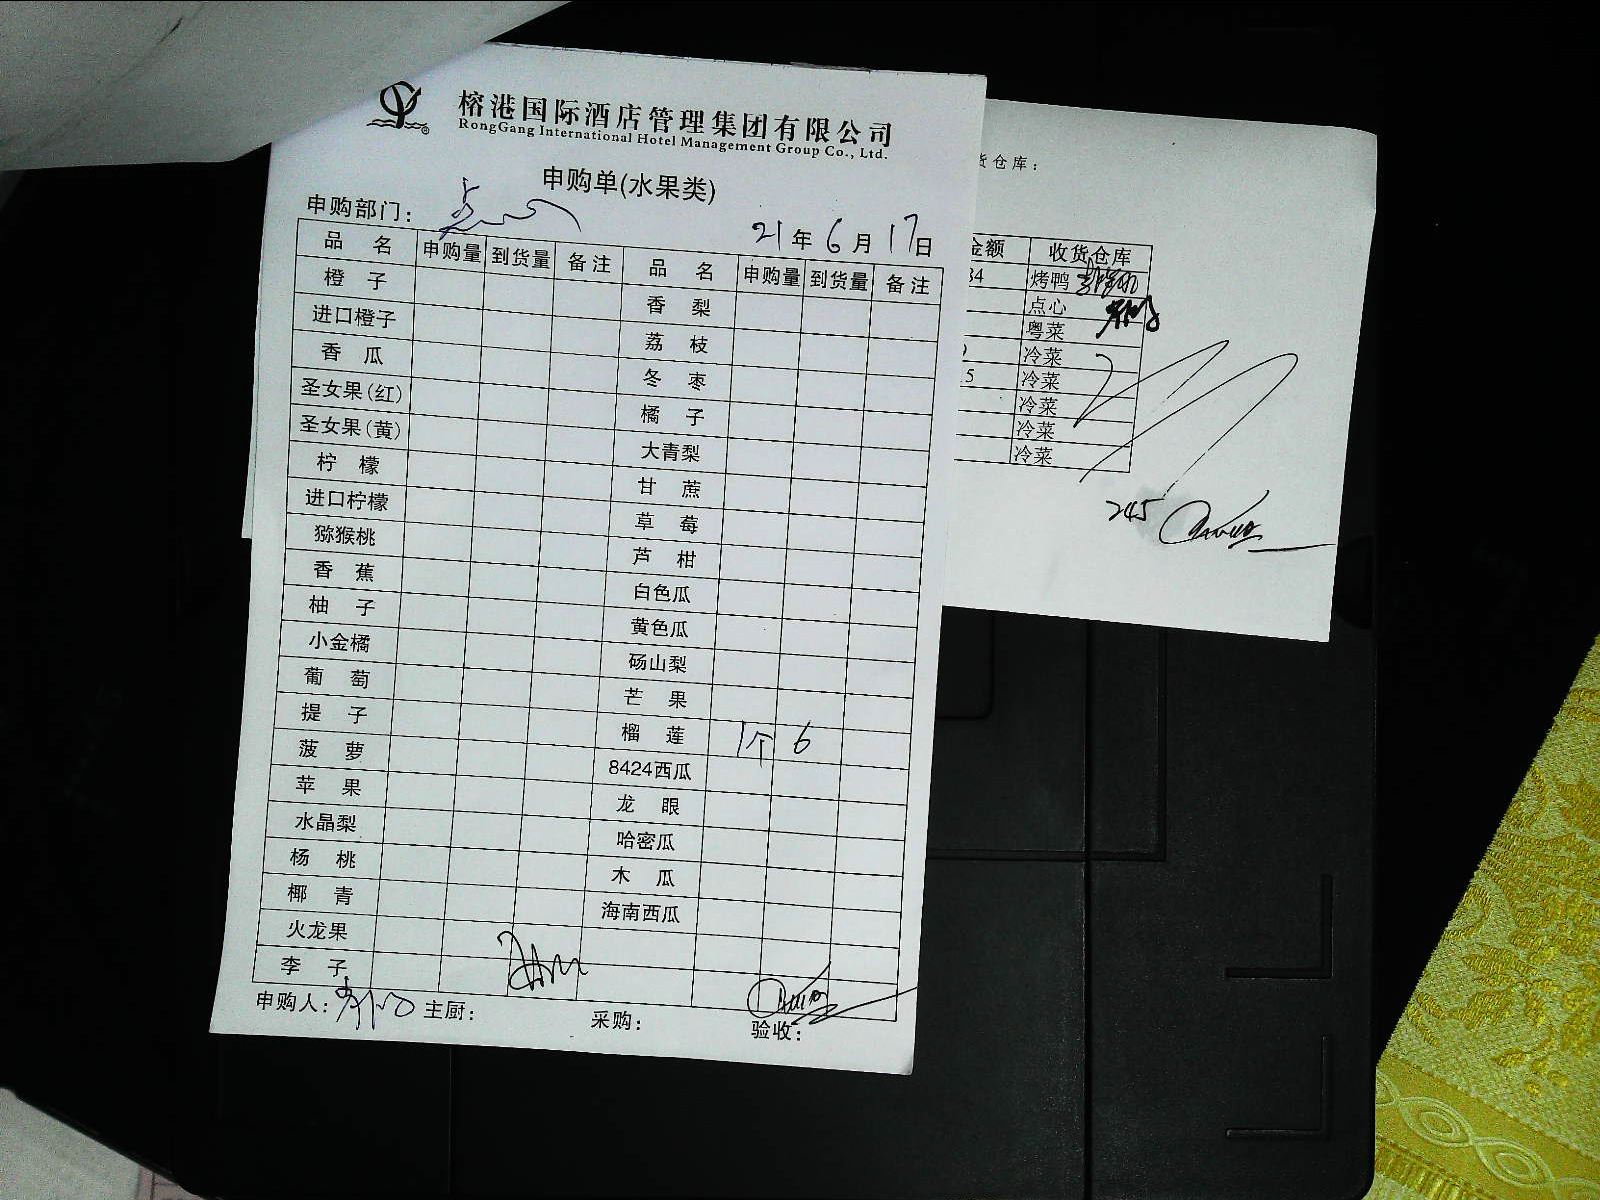 榕港国际酒店管理集团有限公司
RongGang International Hotel Management Group Co., Ltd.
申购单(水果类)
申购部门:
21年6月17日
品名 申购量 到货量 备注 品名 申购量 到货量 备注
橙子 香梨
进口橙子 荔枝
香瓜 冬枣
圣女果(红) 橘子
圣女果(黄) 大青梨
柠檬 甘蔗
进口柠檬 草莓
猕猴桃 芦柑
香蕉 白色瓜
柚子 黄色瓜
小金橘 砀山梨
葡萄 芒果
提子 榴莲 1个 6
菠萝 8424西瓜
苹果 龙眼
水晶梨 哈密瓜
杨桃 木瓜
椰青 海南西瓜
火龙果
李子
申购人: 主厨: 采购: 验收:
货仓库:
金额 收货仓库
34 烤鸭
点心
粤菜
冷菜
5 冷菜
冷菜
冷菜
冷菜
245